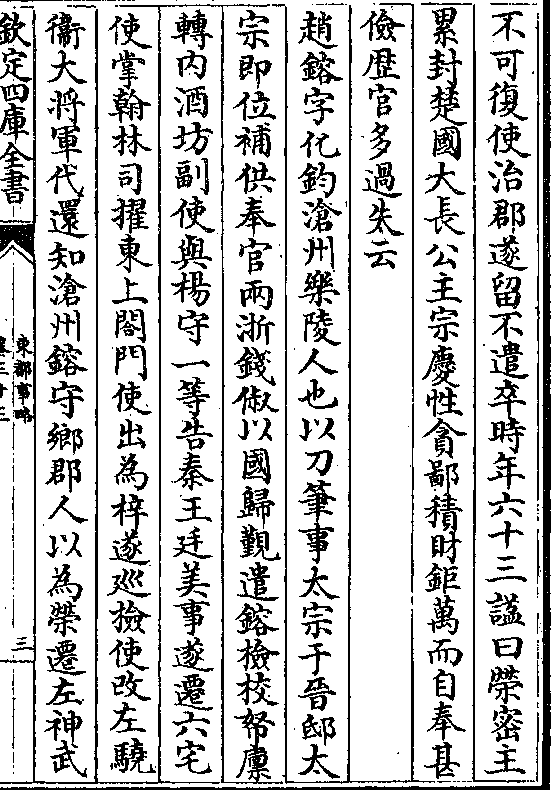 不可復使治郡遂留不遣卒時年六十三諡曰榮密主
累封楚國大長公主宗慶性貪鄙積財鉅萬而自奉甚
儉歴官多過失云
趙鎔字化鈞滄州樂陵人也以刀筆事太宗于晉邸太
宗即位補供奉官兩浙錢俶以國歸覲遣鎔檢校帑廩
轉内酒坊副使與楊守一等告秦王廷美事遂遷六宅
使掌翰林司擢東上閤門使出為梓遂巡撿使改左驍
衞大將軍代還知滄州鎔守鄉郡人以為榮遷左神武
欽定四庫全書
東都事略
卷三十三
三